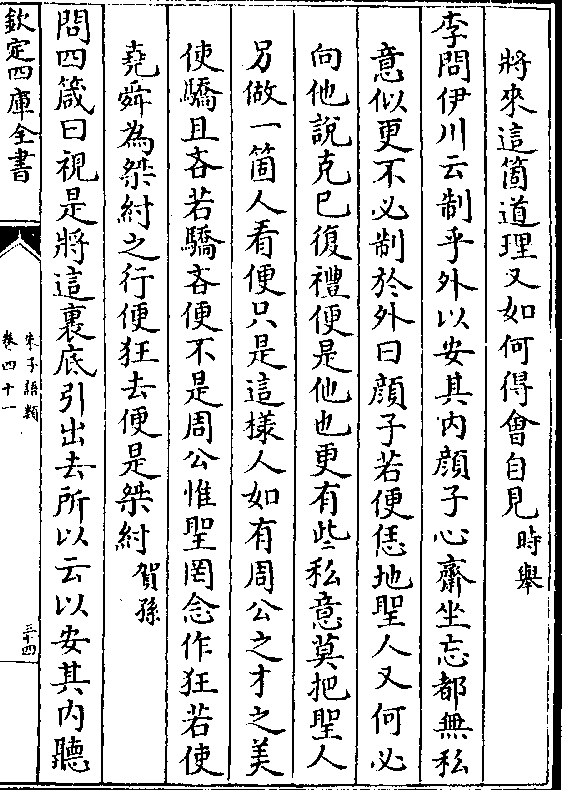 將來這箇道理又如何得會自見時舉
李問伊川云制乎外以安其内顔子心齋坐忘都無私
意似更不必制於外曰顔子若便恁地聖人又何必
向他說克已復禮便是他也更有些私意莫把聖人
另做一箇人看便只是這樣人如有周公之才之美
使驕且吝若驕吝便不是周公惟聖罔念作狂若使
堯舜為桀紂之行便狂去便是桀紂賀孫
問四箴曰視是將這裏底引出去所以云以安其内聽
欽定四庫全書
朱子語類
卷四十一
三十四